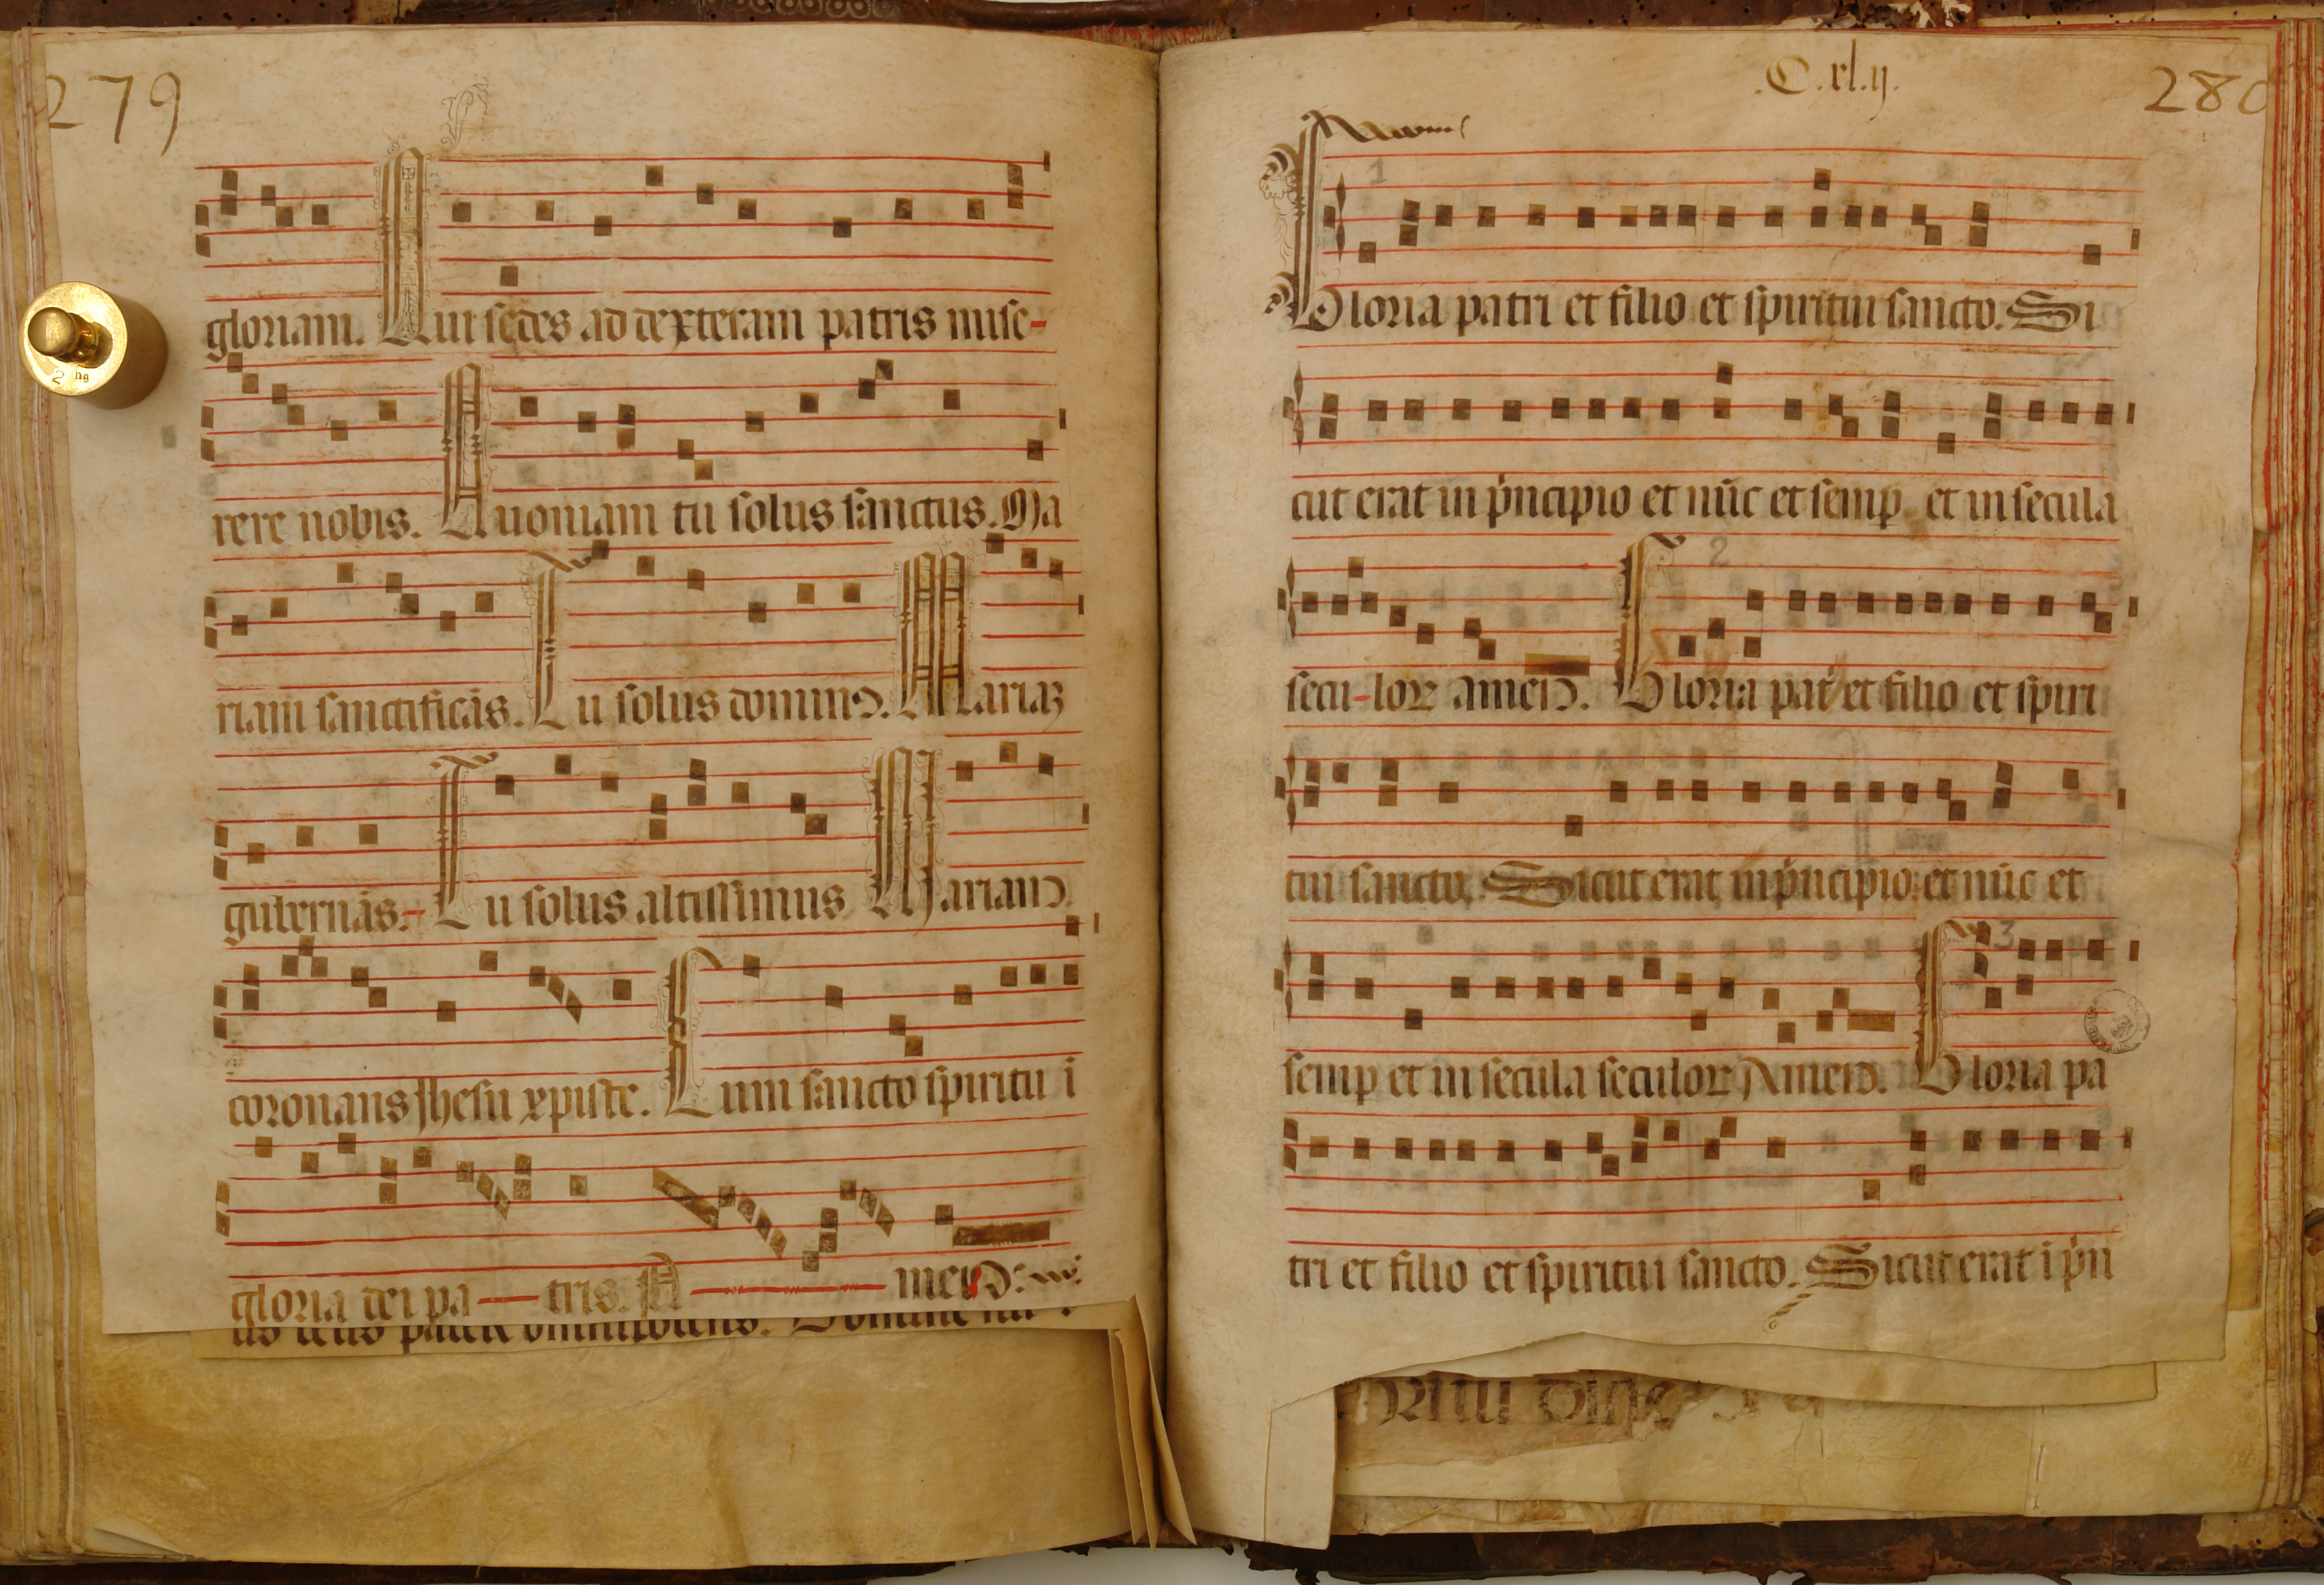 279
gloriam. Qui sedes ad dexteram patris mise-
rere nobis. Quoniam tu solus sanctus. Ma
riam sanctificãs. Tu solus dominus. Mariaʒ
gubernãs. Tu solus altissimus Mariam
coronans Jhesu xpiste. Cum sancto spiritu i
gloria dei pa tris. A men:
us deus pater omnipotens. Domine
2 hg
C.xl.ij.
280
1
Gloria patri et filio et spiritui sancto. Si
cut erat in pñcipio et nũc et semp et in secula
secu-loꝝ amen. Gloria pat et filio et spiri
2
tui sancto. Sicut erat in pñcipio et nũc et
semp et in secula seculoꝝ Amen. Gloria pa
3
tri et filio et spiritui sancto. Sicut erat i pñ